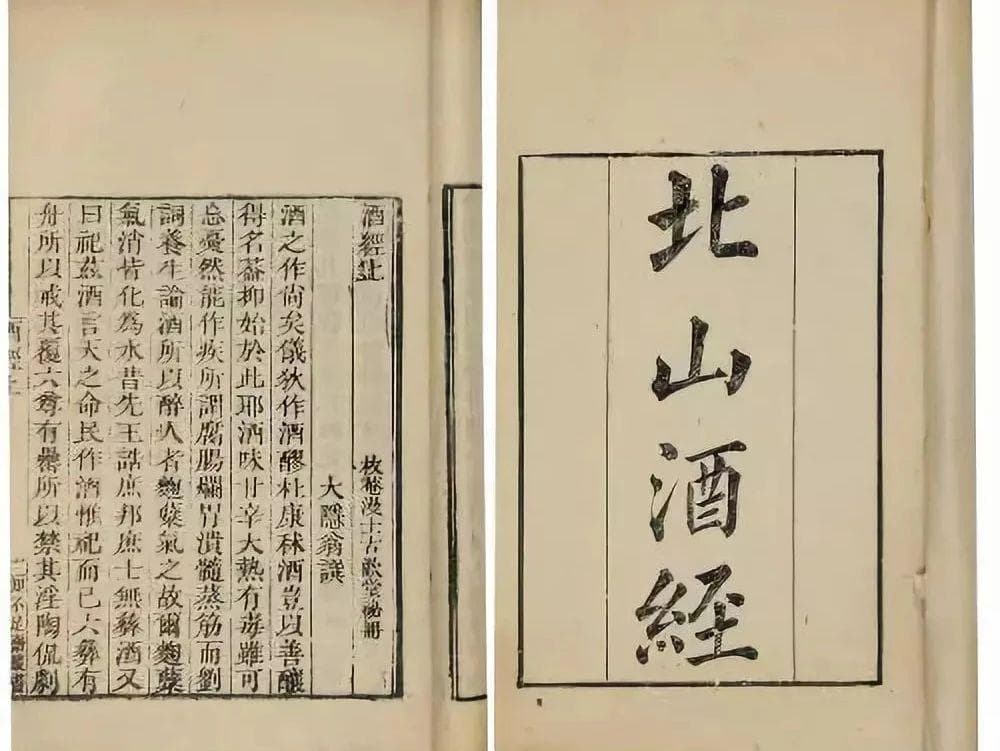 北山酒経
酒經上
枚菴漫士古歡堂秘冊
大隱翁譔
酒之作尚矣儀狄作酒醪杜康秫酒豈以善釀
得名葢抑始於此耶酒味甘辛大熱有毒雖可
忘憂然能作疾所謂腐腸爛胃潰髓蒸筋而劉
詞養生論酒所以醉人者麴糵氣之故爾麴糵
氣消皆化為水昔先王誥庶邦庶士無彝酒又
曰祀茲酒言天之命民作酒惟祀而已六彝有
舟所以戒其覆六尊有罍所以禁其淫陶侃劇